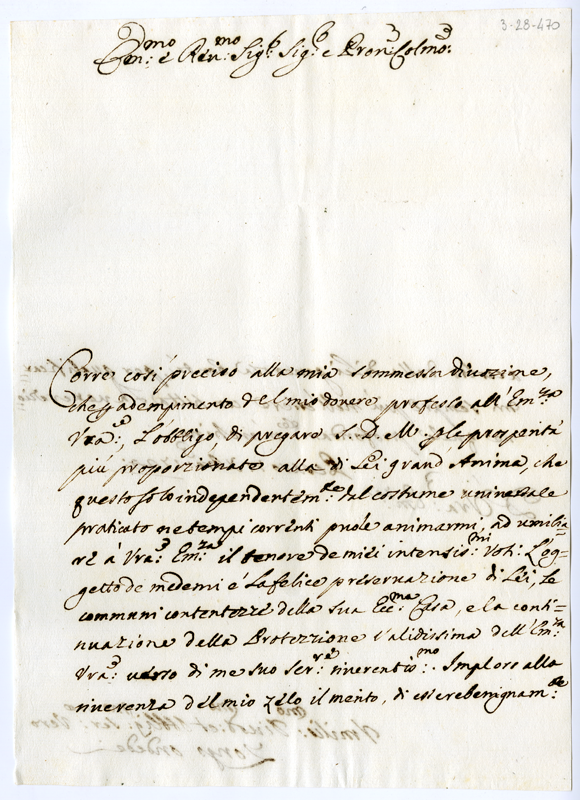 3-28-470
Em:mo é Rev:mo Sig:r Sig:r e Pron: Colmo:
Corre così preciso alla mia sommessa divozione,
che p adempimento del mio dovere professo all' Em:za
Vra:, L'obbligo, di pregare S. D. M. p le prosperità
più proporzionate alla di Lei grand Anima, che
questo solo independentem:te dal costume universale
praticato ne tempi correnti puole animarmi, ad umilia=
re à Vra: Em:za il tenore de miei intensis:mi Voti: L'og=
getto de medemi é La felice preservazione di Lei, Le
communi contentezze della sua Ecc:ma Casa, e la conti=
nuazione della Protezzione validissima dell' Em:za
Vra: verso di me suo Ser:re riverentis:mo. Imploro alla
riverenza del mio zelo il merito, di essere benignam:te